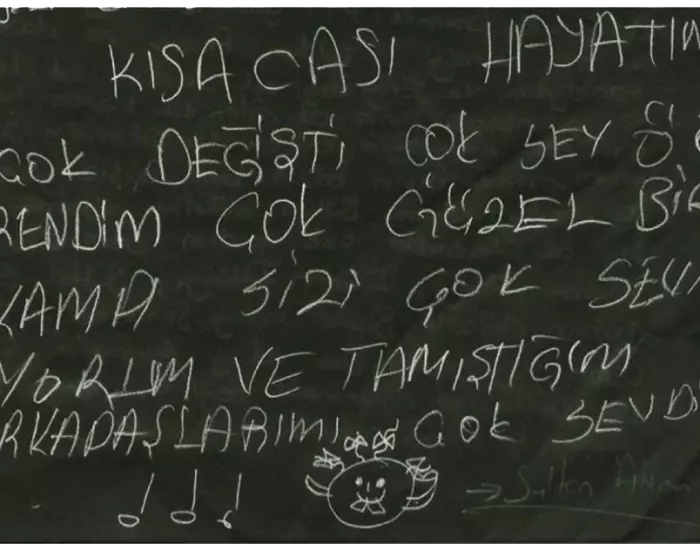 KISACASI HAYATIM
ÇOK DEĞİŞTİ ÇOK ŞEY Ö
RENDİM ÇOK GÜZEL BİR
KAMP SİZİ ÇOK SEVİ
YORUM VE TAMIŞTIĞIM
ARKADAŞLARIMI ÇOK SEVDİ
→ Sultan